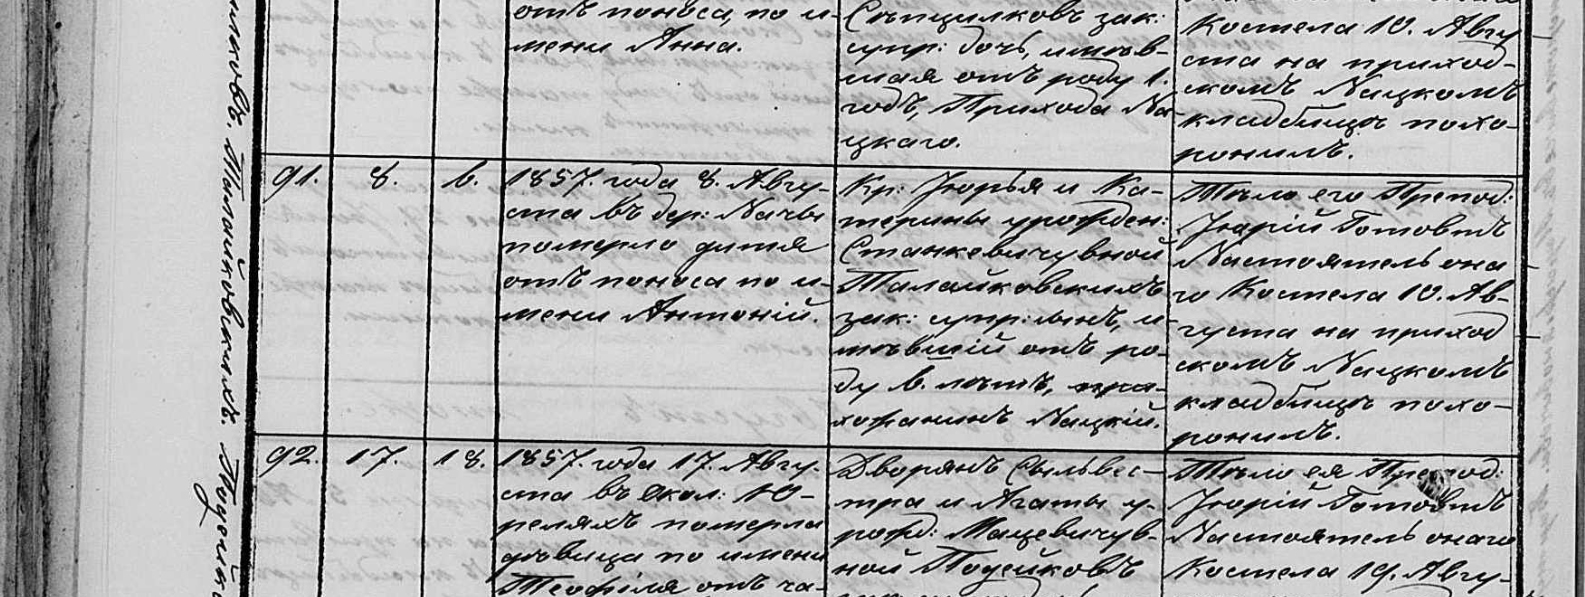 отъ поноса, по и-
мени Анна.
зак:
супр: дочь, имѣв-
шая отъ роду 1.
годъ, Прихода На-
цкаго.
Костела 10. Авгу
ста на приход-
скомъ Нацкомъ
кладбищѣ похо-
ронилъ.
91.
8.
6.
1857. года 8. Авгу-
ста въ дер: Начѣ
померло дитя
отъ поноса по и-
мени Антоній.
Кр: Юрья и Ка-
терины урожден:
Станкевичувной
Талайковскихъ
зак: супр: сынъ, и-
мѣвшій отъ ро-
ду 6. лѣтъ, при-
хожанинъ Нацкій.
Тѣло его Препод:
Юрій Готовтъ
Настоятель она
го Костела 10. Ав-
густа на приход
скомъ Нацкомъ
кладбищѣ похо-
ронилъ.
92.
17.
18.
1857. года 17. Авгу-
ста въ окол: Ю-
реляхъ померла
дѣвица по имени
Теофиля отъ ча-
Дворянъ Сыльвес-
тра и Агаты у-
рожд: Мацевичув-
ной Подейковъ
Тѣло ея Препод:
Юрій Готовтъ
Настоятель онаго
Костела 19. Авгу-
Талайковскихъ.